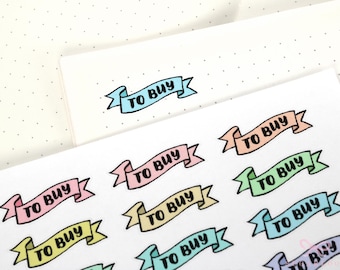 TO BUY
TO BUY
TO BUY
TO BUY
TO BUY
TO BUY
TO BUY
TO BUY
TO BUY
TO BUY